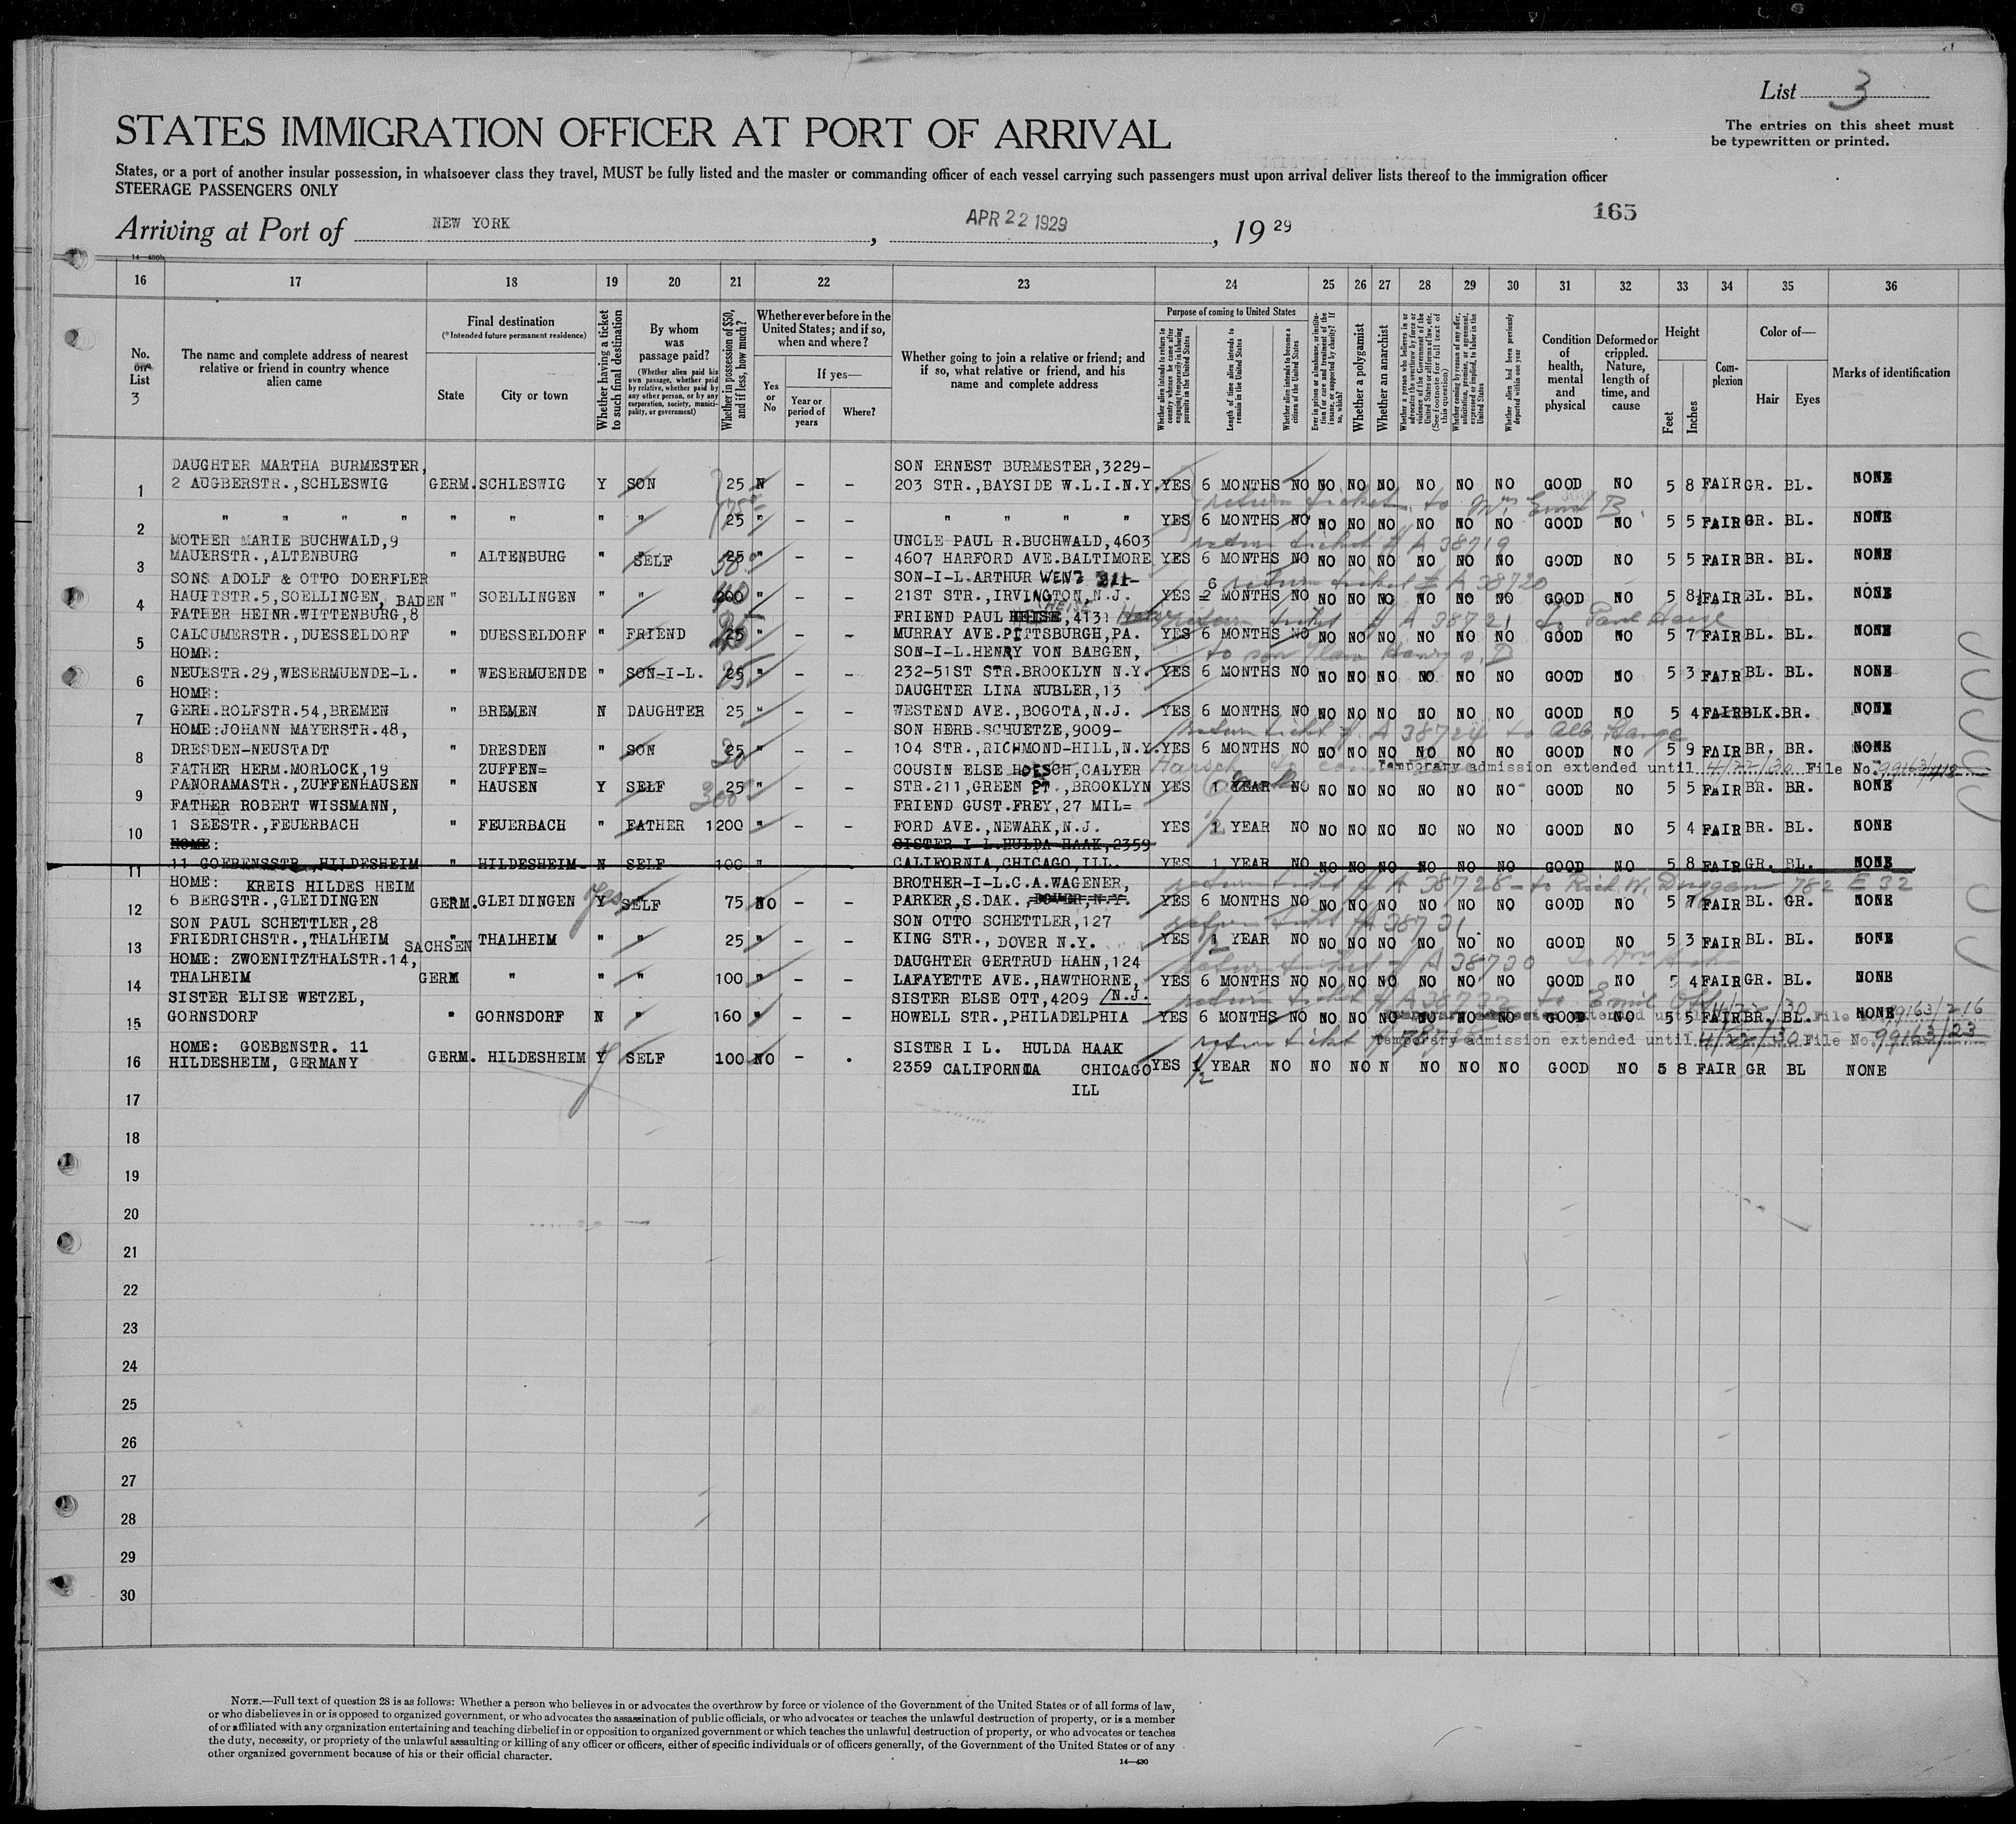 List 3
The entries on this sheet must
be typewritten or printed.
STATES IMMIGRATION OFFICER AT PORT OF ARRIVAL
States, or a port of another insular possession, in whatsoever class they travel, MUST be fully listed and the master or commanding officer of each vessel carrying such passengers must upon arrival deliver lists thereof to the immigration officer
STEERAGE PASSENGERS ONLY
165
Arriving at Port of NEW YORK, APR 22 1929, 19 29
16 17 18 19 20 21 22 23 24 25 26 27 28 29 30 31 32 33 34 35 36
No. on List 3
The name and complete address of nearest relative or friend in country whence alien came
Final destination
(*Intended future permanent residence)
State
City or town
Whether having a ticket to such final destination
By whom was passage paid?
(Whether alien paid his own passage, whether paid by relative, whether paid by any other person, or by any corporation, society, municipality, or government)
Whether in possession of $50, and if less, how much?
Whether ever before in the United States; and if so, when and where?
Yes or No
If yes—
Year or period of years
Where?
Whether going to join a relative or friend; and if so, what relative or friend, and his name and complete address
Purpose of coming to United States
Whether alien intends to return to country whence he came after engaging temporarily in laboring pursuits in the United States
Length of time alien intends to remain in the United States
Whether alien intends to become a citizen of the United States
Ever in prison or almshouse, or institution for care and treatment of the insane, or supported by charity? If so, which?
Whether a polygamist
Whether an anarchist
Whether a person who believes in or advocates the overthrow by force or violence of the Government of the United States or all forms of law, etc. (See footnote for full text of this question)
Whether coming by reason of any offer, solicitation, promise, or agreement, expressed or implied, to labor in the United States
Whether alien had been previously deported within one year
Condition of health, mental and physical
Deformed or crippled. Nature, length of time, and cause
Height
Feet
Inches
Complexion
Color of—
Hair
Eyes
Marks of identification
DAUGHTER MARTHA BURMESTER, SON ERNEST BURMESTER,3229-
1 2 AUGBERSTR.,SCHLESWIG GERM. SCHLESWIG Y SON 25 N – – 203 STR.,BAYSIDE W.L.I.N.Y. YES 6 MONTHS NO NO NO NO NO NO NO GOOD NO 5 8 FAIR GR. BL. NONE
return ticket to Mr. Ernst B.
2 " " " " " " " " 25 " – – " " " " YES 6 MONTHS NO NO NO NO NO NO NO GOOD NO 5 5 FAIR GR. BL. NONE
MOTHER MARIE BUCHWALD,9 UNCLE PAUL R.BUCHWALD,4603 return ticket # A 38719
3 MAUERSTR.,ALTENBURG " ALTENBURG " SELF 25 " – – 4607 HARFORD AVE.BALTIMORE YES 6 MONTHS NO NO NO NO NO NO NO GOOD NO 5 5 FAIR BR. BL. NONE
SONS ADOLF & OTTO DOERFLER SON-I-L.ARTHUR WENZ 211- 6 return ticket # A 38720
4 HAUPTSTR.5,SOELLINGEN, BADEN " SOELLINGEN " " 200 " – – 21ST STR.,IRVINGTON,N.J. YES 2 MONTHS NO NO NO NO NO NO NO GOOD NO 5 8½ FAIR BL. BL. NONE
FATHER HEINR.WITTENBURG,8 FRIEND PAUL HEISE,4131 HEISE return ticket # A 38721 to Paul Heise
5 CALCUMERSTR.,DUESSELDORF " DUESSELDORF " FRIEND 25 " – – MURRAY AVE.PITTSBURGH,PA. YES 6 MONTHS NO NO NO NO NO NO NO GOOD NO 5 7 FAIR BL. BL. NONE
HOME: SON-I-L.HENRY VON BARGEN, to son in law Henry v. B
6 NEUESTR.29,WESERMUENDE-L. " WESERMUENDE " SON-I-L. 25 " – – 232-51ST STR.BROOKLYN N.Y. YES 6 MONTHS NO NO NO NO NO NO NO GOOD NO 5 3 FAIR BL. BL. NONE
HOME: DAUGHTER LINA NUBLER,13
7 GERH.ROLFSTR.54,BREMEN " BREMEN N DAUGHTER 25 " – – WESTEND AVE.,BOGOTA,N.J. YES 6 MONTHS NO NO NO NO NO NO NO GOOD NO 5 4 FAIR BLK. BR. NONE
HOME:JOHANN MAYERSTR.48, SON HERB.SCHUETZE,9009- return ticket # A 38724 to Alb. Stange
8 DRESDEN-NEUSTADT " DRESDEN " SON 25 " – – 104 STR.,RICHMOND-HILL,N.Y. YES 6 MONTHS NO NO NO NO NO NO NO GOOD NO 5 9 FAIR BR. BR. NONE
FATHER HERM.MORLOCK,19 ZUFFEN= COUSIN ELSE HOESCH,CALYER Temporary admission extended until 4/22/30 File No. 99163/
9 PANORAMASTR.,ZUFFENHAUSEN " HAUSEN Y SELF 25 " – – STR.211,GREEN PT.,BROOKLYN YES 1 YEAR NO NO NO NO NO NO NO GOOD NO 5 5 FAIR BR. BR. NONE
FATHER ROBERT WISSMANN, FRIEND GUST.FREY,27 MIL=
10 1 SEESTR.,FEUERBACH " FEUERBACH " FATHER 1200 " – – FORD AVE.,NEWARK,N.J. YES 1 YEAR NO NO NO NO NO NO NO GOOD NO 5 4 FAIR BR. BL. NONE
HOME: SISTER I L.HULDA HAAK,2359
11 11 GOEBENSSTR.,HILDESHEIM " HILDESHEIM N SELF 100 " CALIFORNIA,CHICAGO,ILL. YES 1 YEAR NO NO NO NO NO NO NO GOOD NO 5 8 FAIR GR. BL. NONE
HOME: KREIS HILDES HEIM yes BROTHER-I-L.C.A.WAGENER, return ticket # A 38728 - to Rich. W. Duggan 782 E 32
12 6 BERGSTR.,GLEIDINGEN GERM. GLEIDINGEN Y SELF 75 NO – – PARKER,S.DAK.,DOVER,N.Y. YES 6 MONTHS NO NO NO NO NO NO NO GOOD NO 5 7 FAIR BL. GR. NONE
SON PAUL SCHETTLER,28 SON OTTO SCHETTLER,127 return ticket # A 38731
13 FRIEDRICHSTR.,THALHEIM SACHSEN " THALHEIM " " 25 " – – KING STR., DOVER N.Y. YES ½ YEAR NO NO NO NO NO NO NO GOOD NO 5 3 FAIR BL. BL. NONE
HOME: ZWOENITZTHALSTR.14, DAUGHTER GERTRUD HAHN,124 return ticket # A 38730
14 THALHEIM GERM " " " 100 " – – LAFAYETTE AVE.,HAWTHORNE, N.J. YES 6 MONTHS NO NO NO NO NO NO NO GOOD NO 5 4 FAIR GR. BL. NONE
SISTER ELISE WETZEL, SISTER ELSE OTT,4209 return ticket # A 38732 to Emil Ott
15 GORNSDORF " GORNSDORF N " 160 " – – HOWELL STR.,PHILADELPHIA YES 6 MONTHS NO NO NO NO NO NO NO GOOD NO 5 5 FAIR BR. BL. NONE
Temporary admission extended until 4/22/30 File No. 99163/216
return ticket Temporary admission extended until 4/22/30 File No. 99163/23
HOME: GOEBENSTR. 11 SISTER I L. HULDA HAAK
16 HILDESHEIM, GERMANY GERM. HILDESHEIM Y SELF 100 NO – . 2359 CALIFORNIA CHICAGO ILL YES ½ YEAR NO NO NO N NO NO NO GOOD NO 5 8 FAIR GR BL NONE
17
18
19
20
21
22
23
24
25
26
27
28
29
30
NOTE.—Full text of question 28 is as follows: Whether a person who believes in or advocates the overthrow by force or violence of the Government of the United States or of all forms of law,
or who disbelieves in or is opposed to organized government, or who advocates the assassination of public officials, or who advocates or teaches the unlawful destruction of property, or is a member
of or affiliated with any organization entertaining and teaching disbelief in or opposition to organized government or which teaches the unlawful destruction of property, or who advocates or teaches
the duty, necessity, or propriety of the unlawful assaulting or killing of any officer or officers, either of specific individuals or of officers generally, of the Government of the United States or of any
other organized government because of his or their official character.
14—430